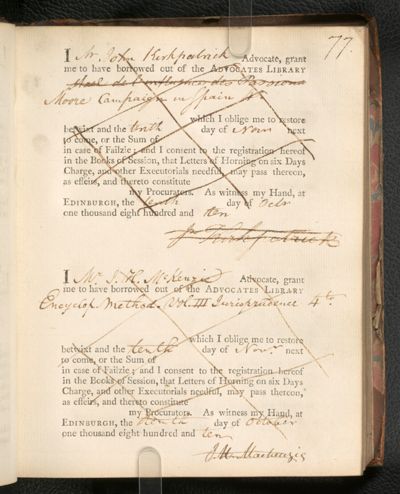 77.
I Mr. John Kirkpatrick Advocate, grant
me to have borrowed out of the ADVOCATES LIBRARY
Stael de l'influence des Passions
Moore Campaign in Spain 4to
which I oblige me to restore
betwixt and the tenth day of Novr next
to come, or the Sum of
in case of Failzie; and I consent to the registration hereof
in the Books of Session, that Letters of Horning on six Days
Charge, and other Executorials needful, may pass thereon,
as effeirs, and thereto constitute
my Procurators. As witness my Hand, at
EDINBURGH, the tenth day of Octr
one thousand eight hundred and ten
Jn Kirkpatrick
I Mr J. H. McKenzie Advocate, grant
me to have borrowed out of the ADVOCATES LIBRARY
Encyclop Method. Vol. III Jurisprudence 4to.
which I oblige me to restore
betwixt and the tenth day of Novr. next
to come, or the Sum of
in case of Failzie; and I consent to the registration hereof
in the Books of Session, that Letters of Horning on six Days
Charge, and other Executorials needful, may pass thereon,
as effeirs, and thereto constitute
my Procurators. As witness my Hand, at
EDINBURGH, the tenth day of October
one thousand eight hundred and ten
J. H. Mackenzie